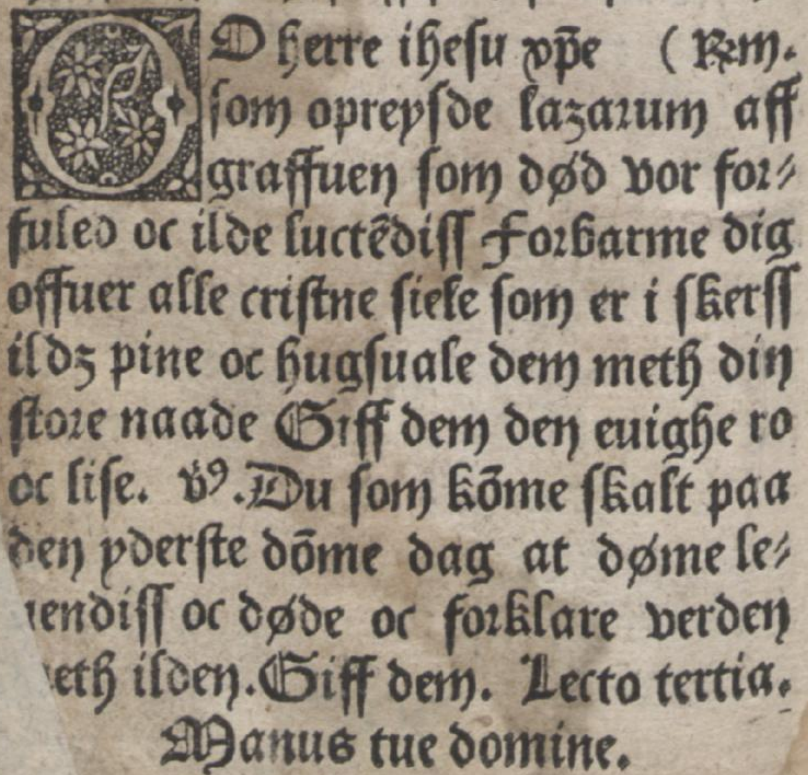 OO herre ihesu xp̄e ( Rm̄.
som opreysde lazarum aff
graffuen som død vor for⸗
fuled oc ilde luctēdiss Forbarme dig
offuer alle cristne siele som er i skerss
ildz pine oc hugsuale dem meth din
store naade Giff dem den euighe ro
oc lise. v̄ꝰ. Du som kōme skalt paa
den yderste dōme dag at døme le⸗
uendiss oc døde oc forklare verden
meth ilden. Giff dem. Lecto tertia.
Manus tue domine.